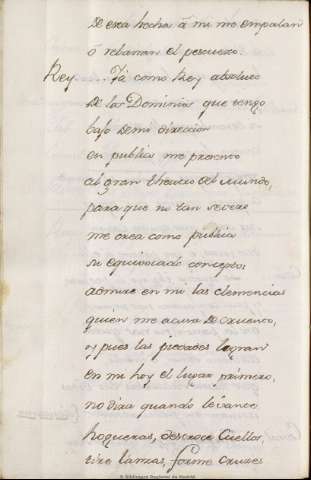 De esta hecha á mi me empalan
ó rebanan el pescuezo.
Rey.....Ya como Rey absoluto
De los Dominios que tengo
bajo de mi direccion
en publico me presento
al gran theatro del mundo,
para que no tan severo
me crea como publica
su equivocado concepto;
admire en mi las clemencias
quien me acusa de cruento,
y pues las piedades logran
en mi hoy el lugar primero,
no dira quando levante
hogueras, destroce Cuellos,
tire lanzas, forme cruzes
© Biblioteca Regional de Madrid